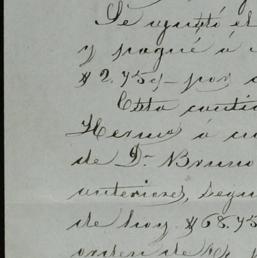 Se ajustó el
y pagué á
$2.759- por
Esta canti
á cu
de Dn Bruno
anteriores, segu
de hoy $68.75
orden de